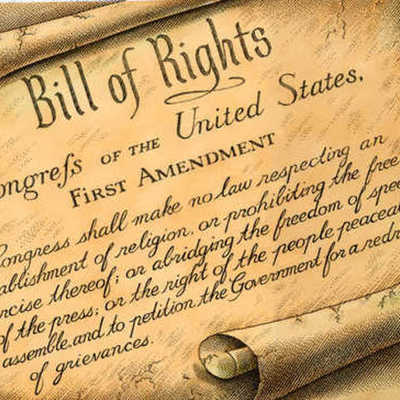 Bill of Rights
ongreſs OF THE United States,
FIRST AMENDMENT
Congress shall make no law respecting an
ablishment of religion, or prohibiting the free
rcise thereof; or abridging the freedom of spee
of the press; or the right of the people peaceab
assemble, and to petition the Government for a redr
of grievances.